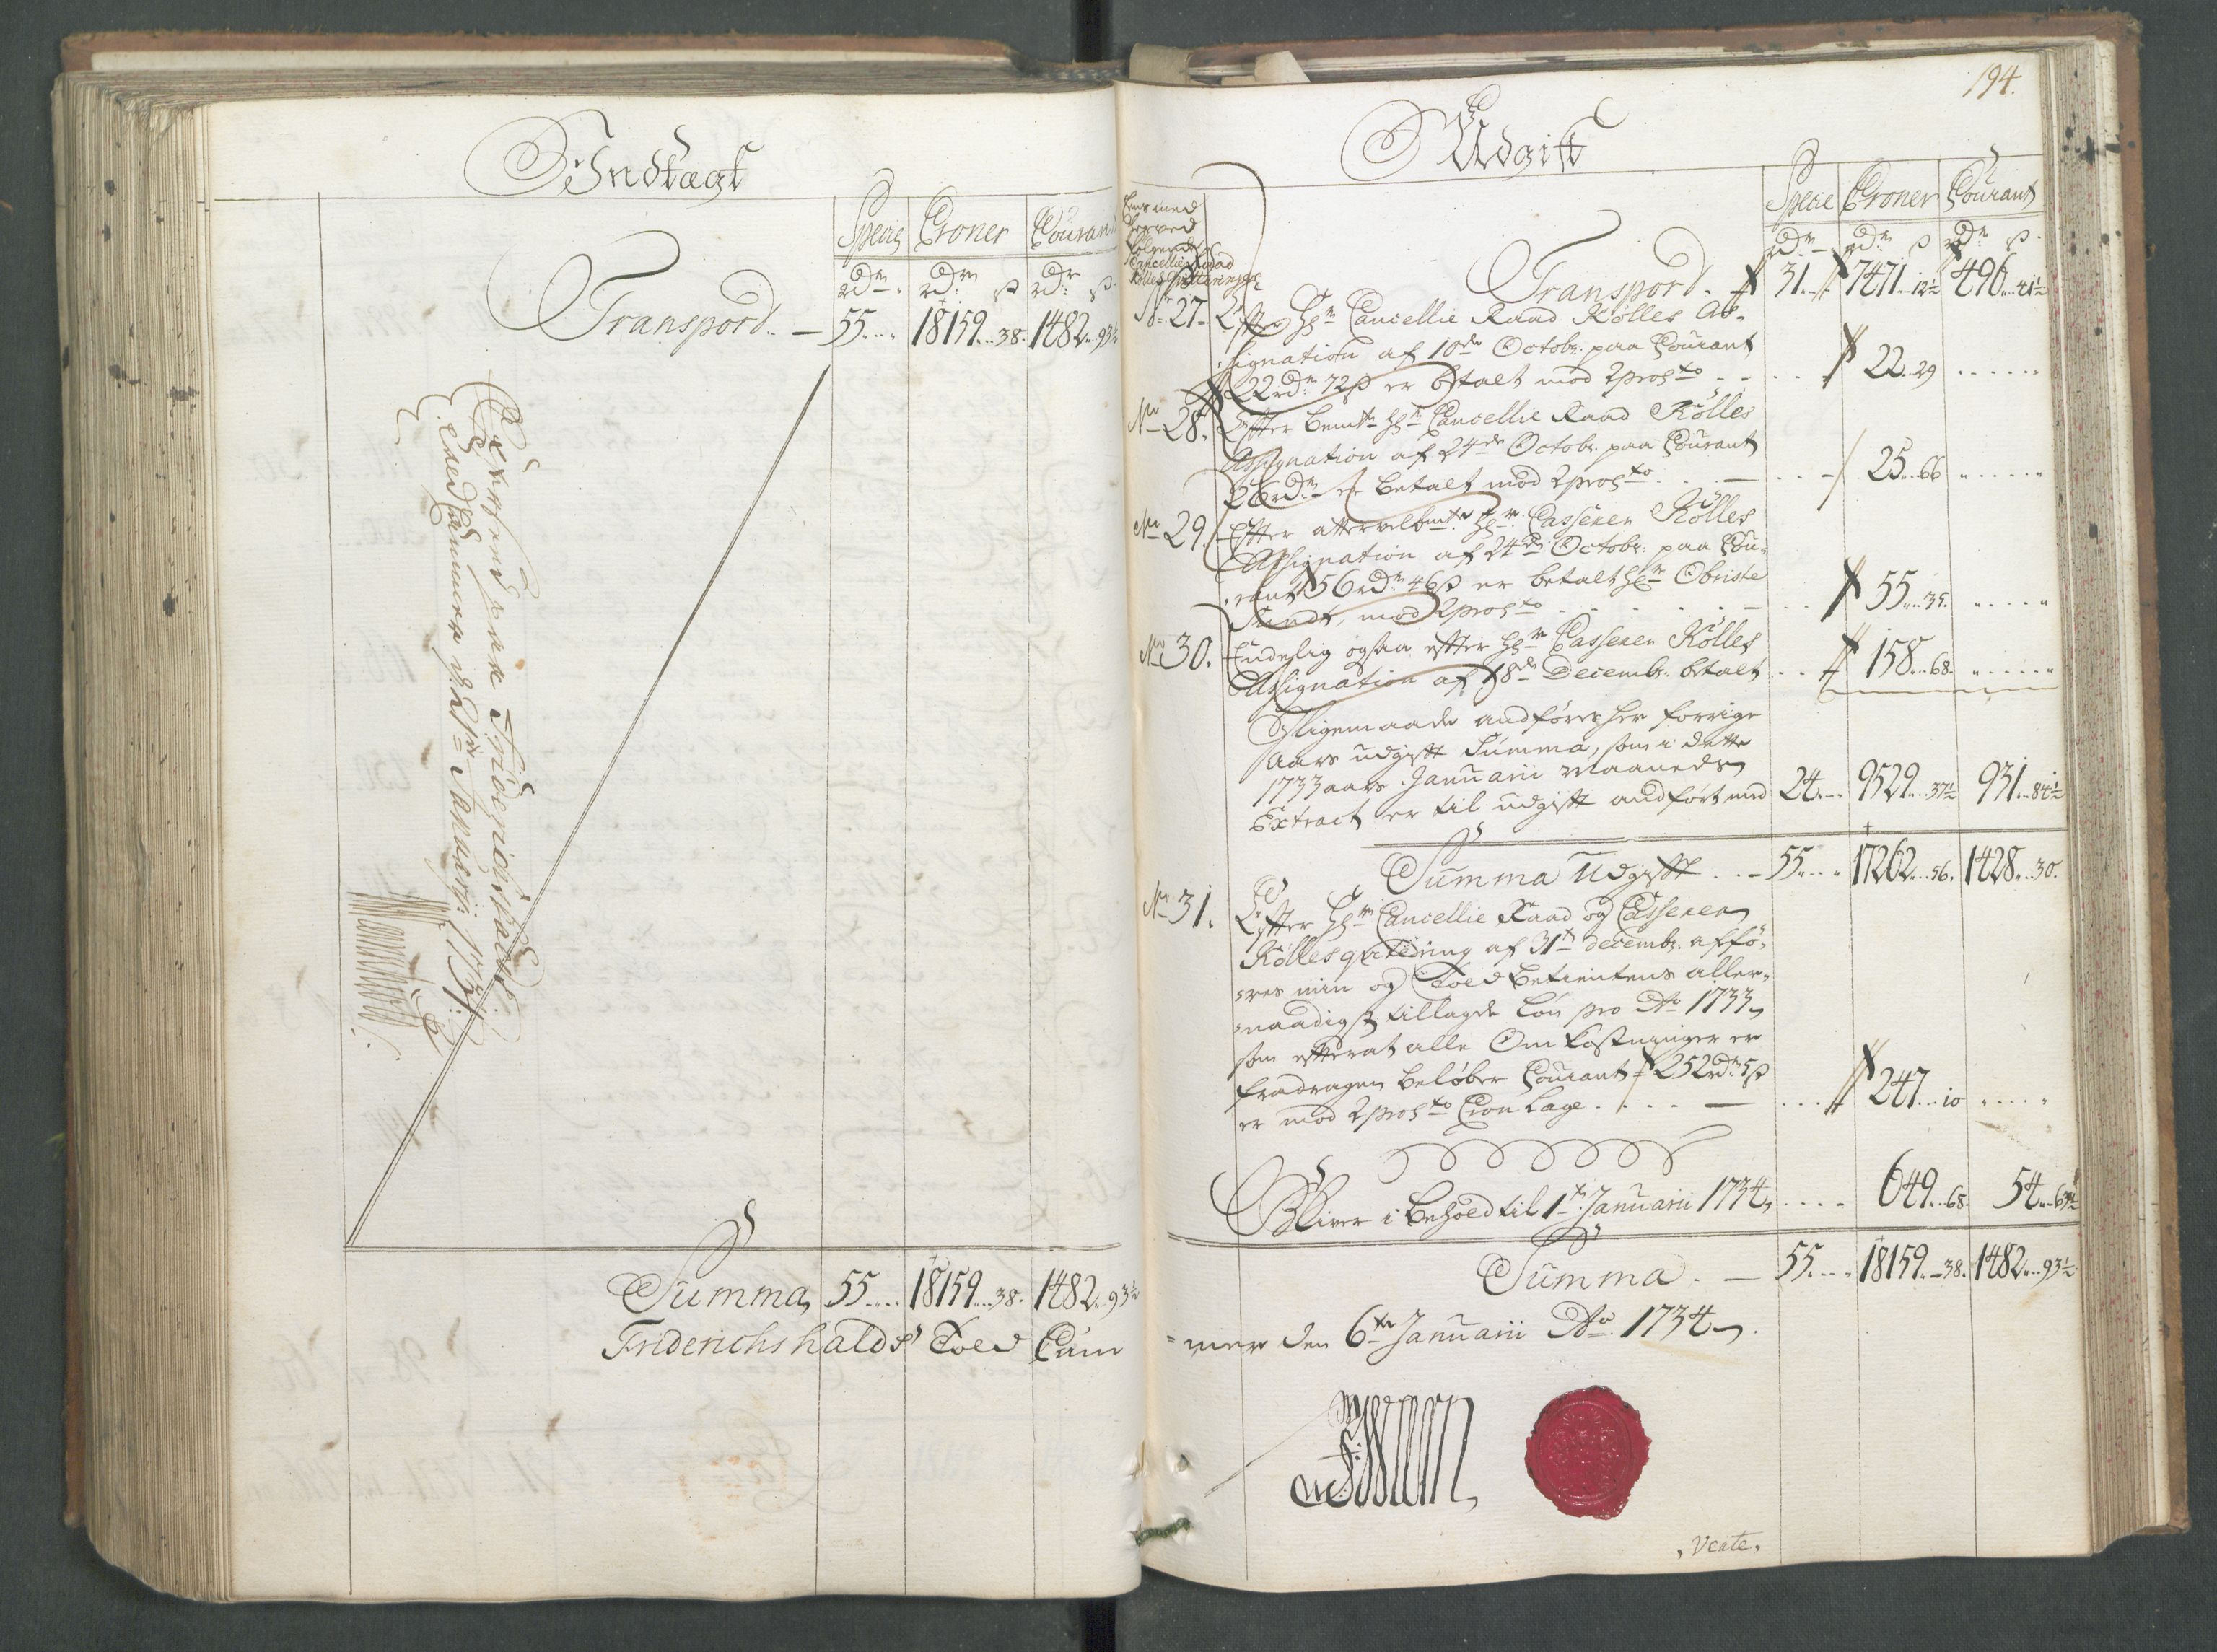 Indtægt
Specie Croner Courant
rdr. rdr. ß rdr. ß
Transpord. — 55.... 18159...38. 1482..93½
Fridrichshalds
Toed Cammer d. 2de Januarij: 1734.
Summa, 55.... 18159...38. 1482..93½
Friderichshalds Toed Cam
194.
Udgift
Specie Croner Courant
rdr. rdr. ß rdr. ß
Transpord. 31... 7471..12½ 496..41½
No 27. Efter Hr. Cancellie Raad Kölles As-
signation af 10de Octobr. paa Courant
22 rdr. 72 ß er betalt mod 2 procto 22..29
No 28. Efter bemte Hr. Cancellie Raad Kölles
Assignation af 24de Octobr. paa Courant
26 rdr. er betalt mod 2 procto 25..66
No 29. Efter Hr. Casserer Kölles
Assignation af 24de Octobr. paa Cou-
rant 56 rdr. 46 ß er betalt Hr. Obriste
mod 2 procto 55..35.
No 30. Endelig ogsaa efter Hr. Casserer Kölles
Assignation af 18de Decembr. betalt 158..68.
Ligemaade andføres her forrige
Aars udgift Summa, som i dette
1733 aars Januarii Maaneds
Extract er til udgift andført med 24... 9529...37½ 931..84½
Summa Udgift .. — 55.... 17262...56. 1428...30.
No 31. Efter Hr. Cancellie Raad og Casserer
Kölles qvitering af 31te decembr. affø-
res min og Toed betientens aller-
naadigst tillagde Løn pro Ao 1733,
som efterat alle Omkostninger er
fradragen beløber Courant 252 rdr. 5 ß
er mod 2 procto Cron Lage 247...10
Bliver i behold til 1te Januarii 1734, 649..68. 54..63½
Summa. — 55.... 18159..38. 1482...93½
mer den 6te Januarii Ao. 1734.
Verte.